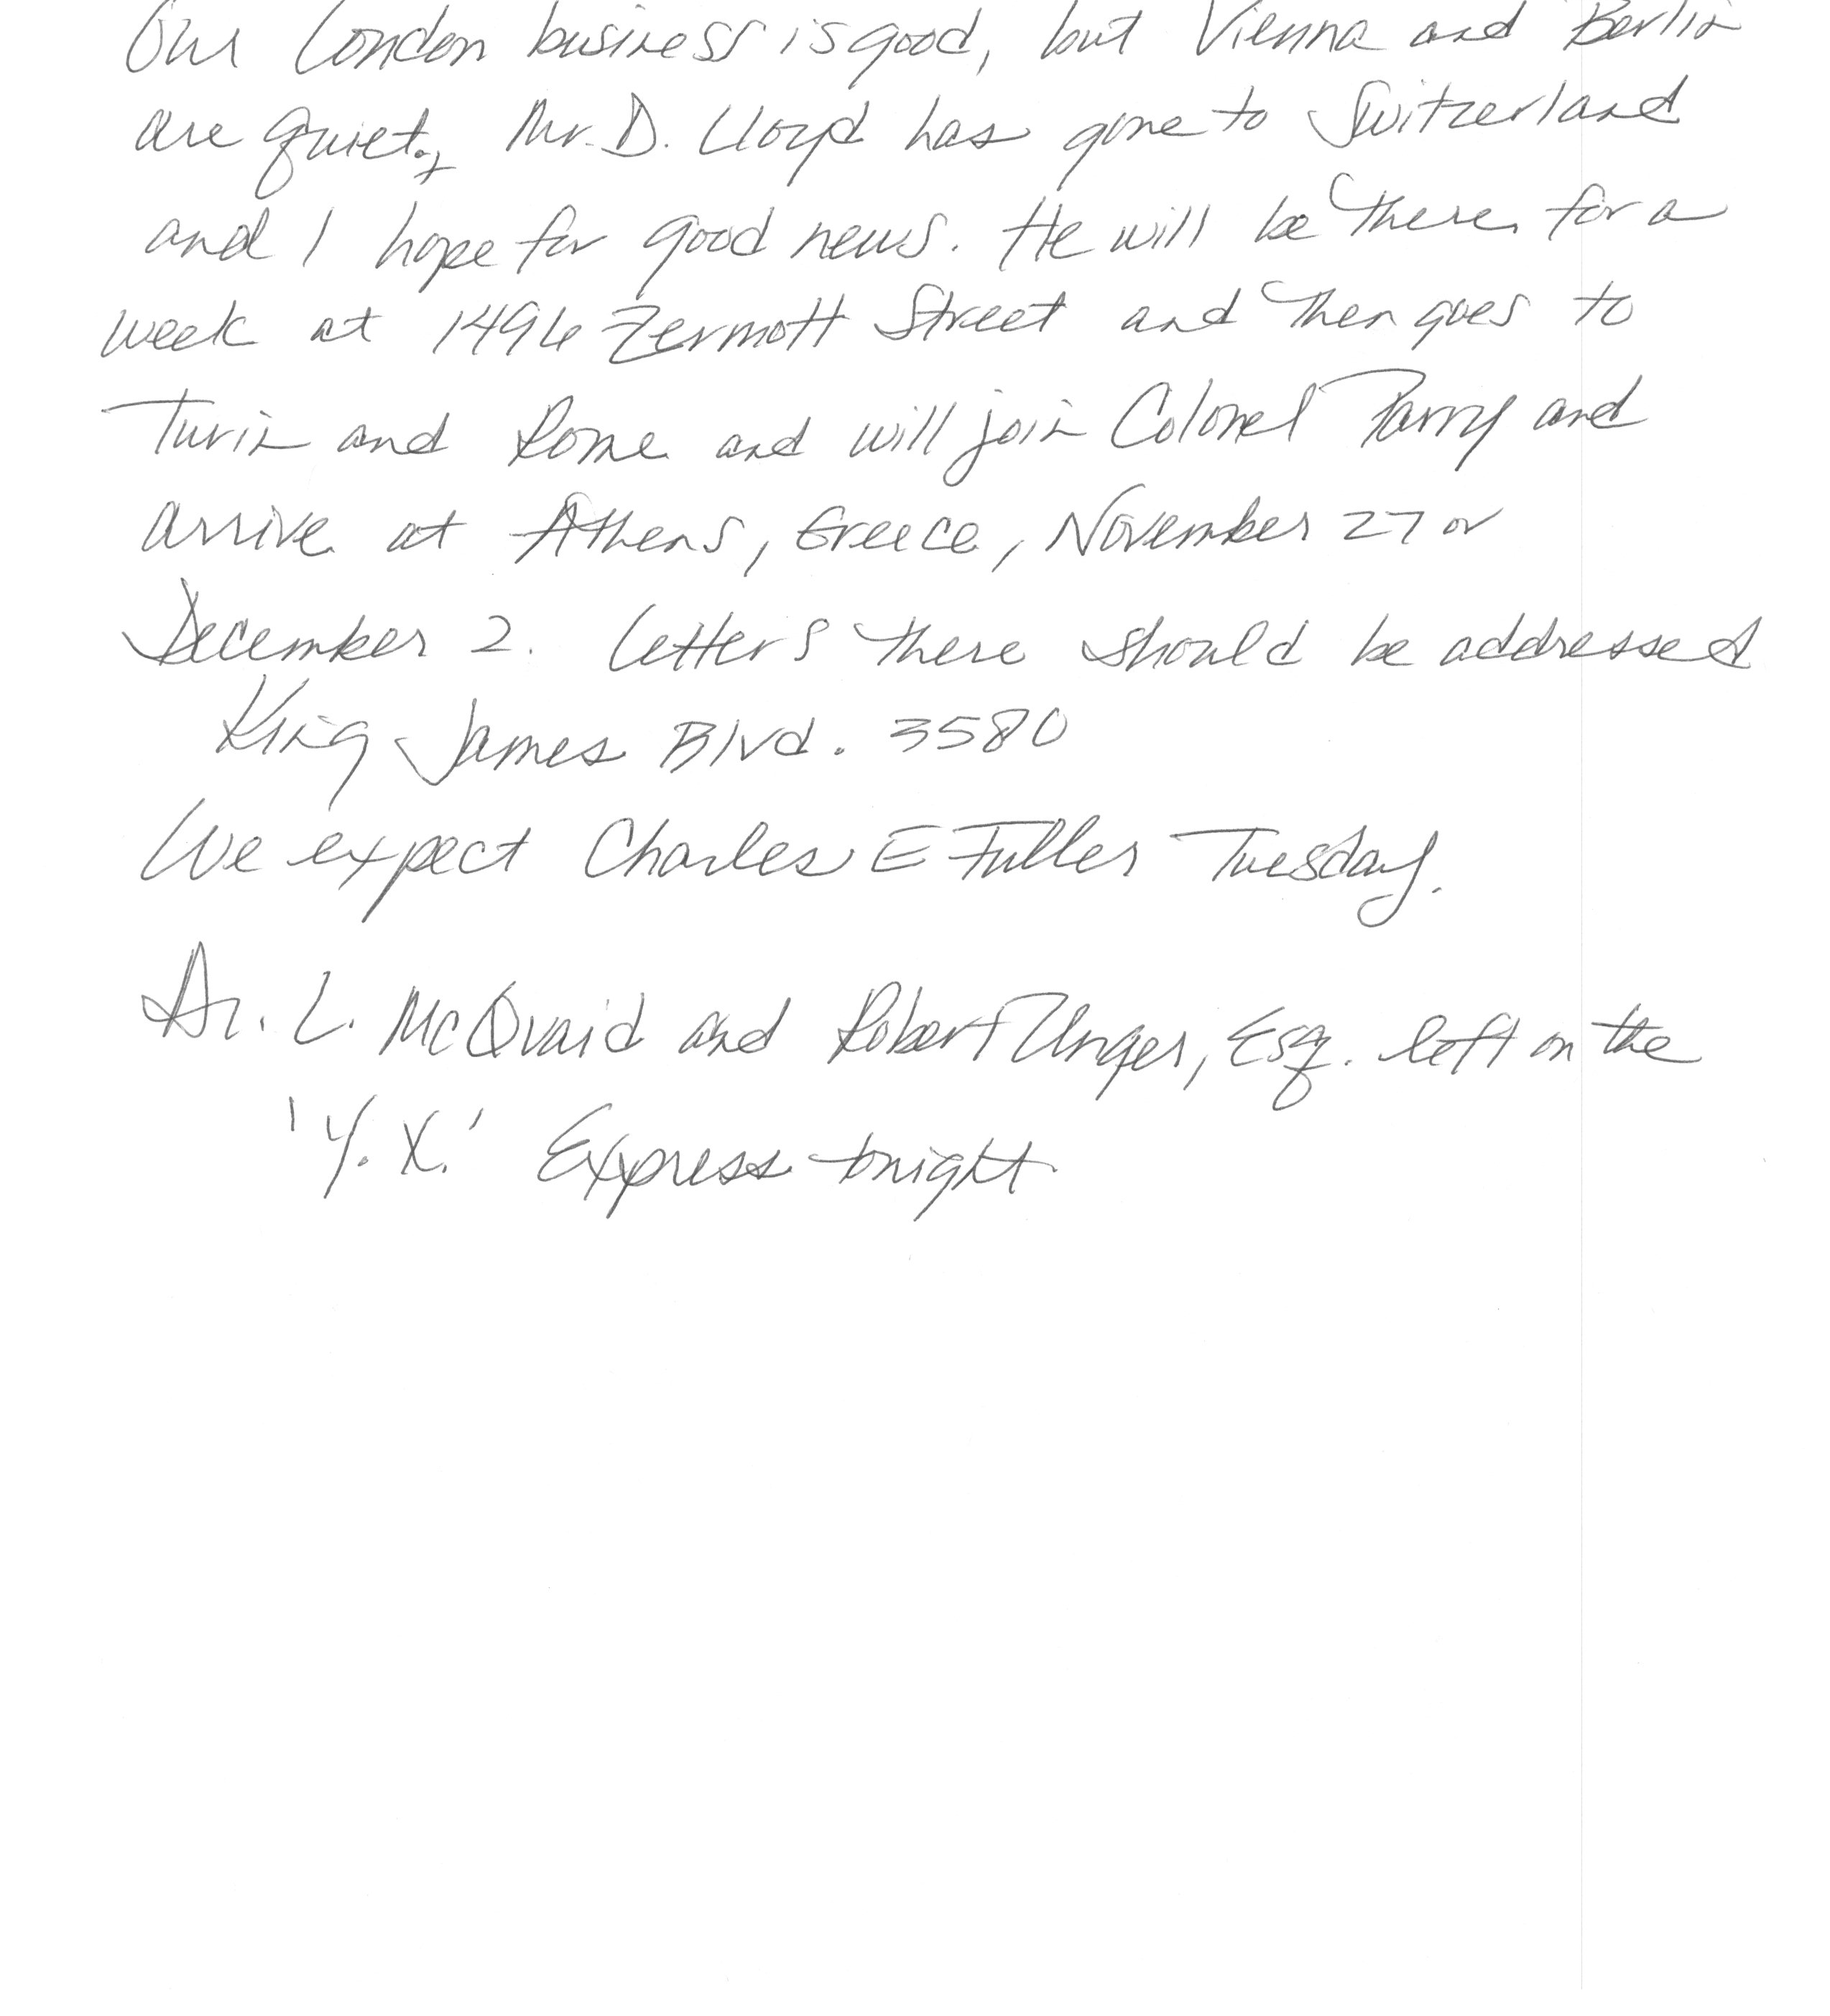 Our London business is good, but Vienna and Berlin
are quiet. Mr. D. Lloyd has gone to Switzerland
and I hope for good news. He will be there for a
week at 1496 Zermott Street and then goes to
Turin and Rome and will join Colonel Parry and
arrive at Athens, Greece, November 27 or
December 2. Letters there should be addressed
King James Blvd. 3580
We expect Charles E Fuller Tuesday.
Dr. L. McQuaid and Robert Unger, Esq. left on the
'Y.X.' Express tonight.